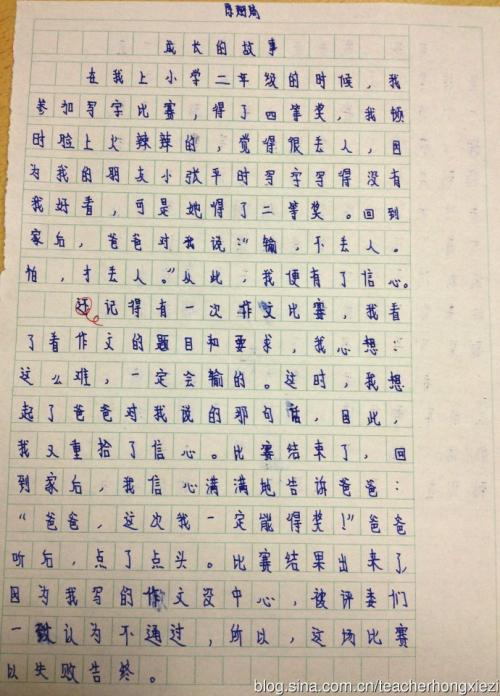 成长的故事
在我上小学二年级的时候，我
参加写字比赛，得了四等奖，我顿
时脸上火辣辣的，觉得很丢人，因
为我的朋友小张平时写字写得没有
我好看，可是她得了二等奖。回到
家后，爸爸对我说：“输，不丢人。
怕，才丢人。”从此，我便有了信心。
还记得有一次作文比赛，我看
了看作文的题目和要求，我心想：
这么难，一定会输的。这时，我想
起了爸爸对我说的那句话，因此，
我又重拾了信心。比赛结束了，回
到家后，我信心满满地告诉爸爸：
“爸爸，这次我一定能得奖！”爸爸
听后，点了点头。比赛结果出来了，
因为我写的作文没中心，被评委们
一致认为不通过，所以，这场比赛
以失败告终。
blog.sina.com.cn/teacherhongxiezi